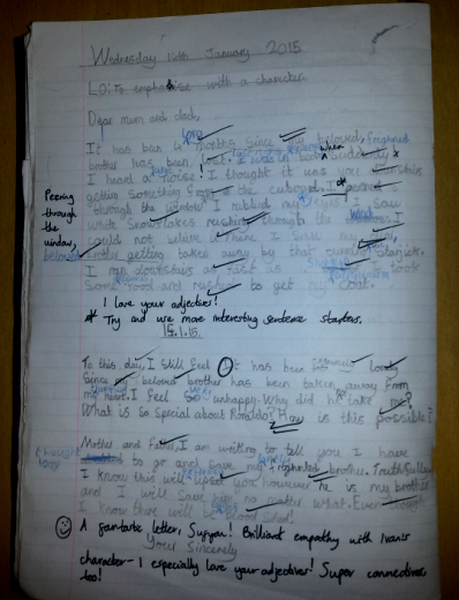 Wednesday 14th January 2015
LO: To emphasise with a character
Dear mum and dad,
long
It has been 4 months since my beloved, frightened
brother has been lost. I was in bed when suddenly
I heard a noise! I thought it was you
getting something from the cuboard. I
Peering
through
the
window,
beloved
through the window I rubbed my eyes I saw
white snowflakes rushing through the
wind
could not believe it. There I saw my
brother getting taken away by that
I ran downstairs as fast as took
some food and rushed to get my coat.
I love your adjectives!
* Try and use more interesting sentence starters.
15.1.15.
To this day, I still feel It has been lonely
Since my beloved brother has been taken away from
my heart. I feel so unhappy. Why did he take me?
What is so special about Ronaldo? How is this possible?
Mother and Father, I am writing to tell you I have
to go and save my frightened brother. Truthfully
I know this will upset you however he is my brother
and I will save him no matter what. Even though
I know there will be blood shed!
A fantastic letter, ! Brilliant empathy with Ivan's
Your Sincerely
character - I especially love your adjectives! Super connectives,
too!